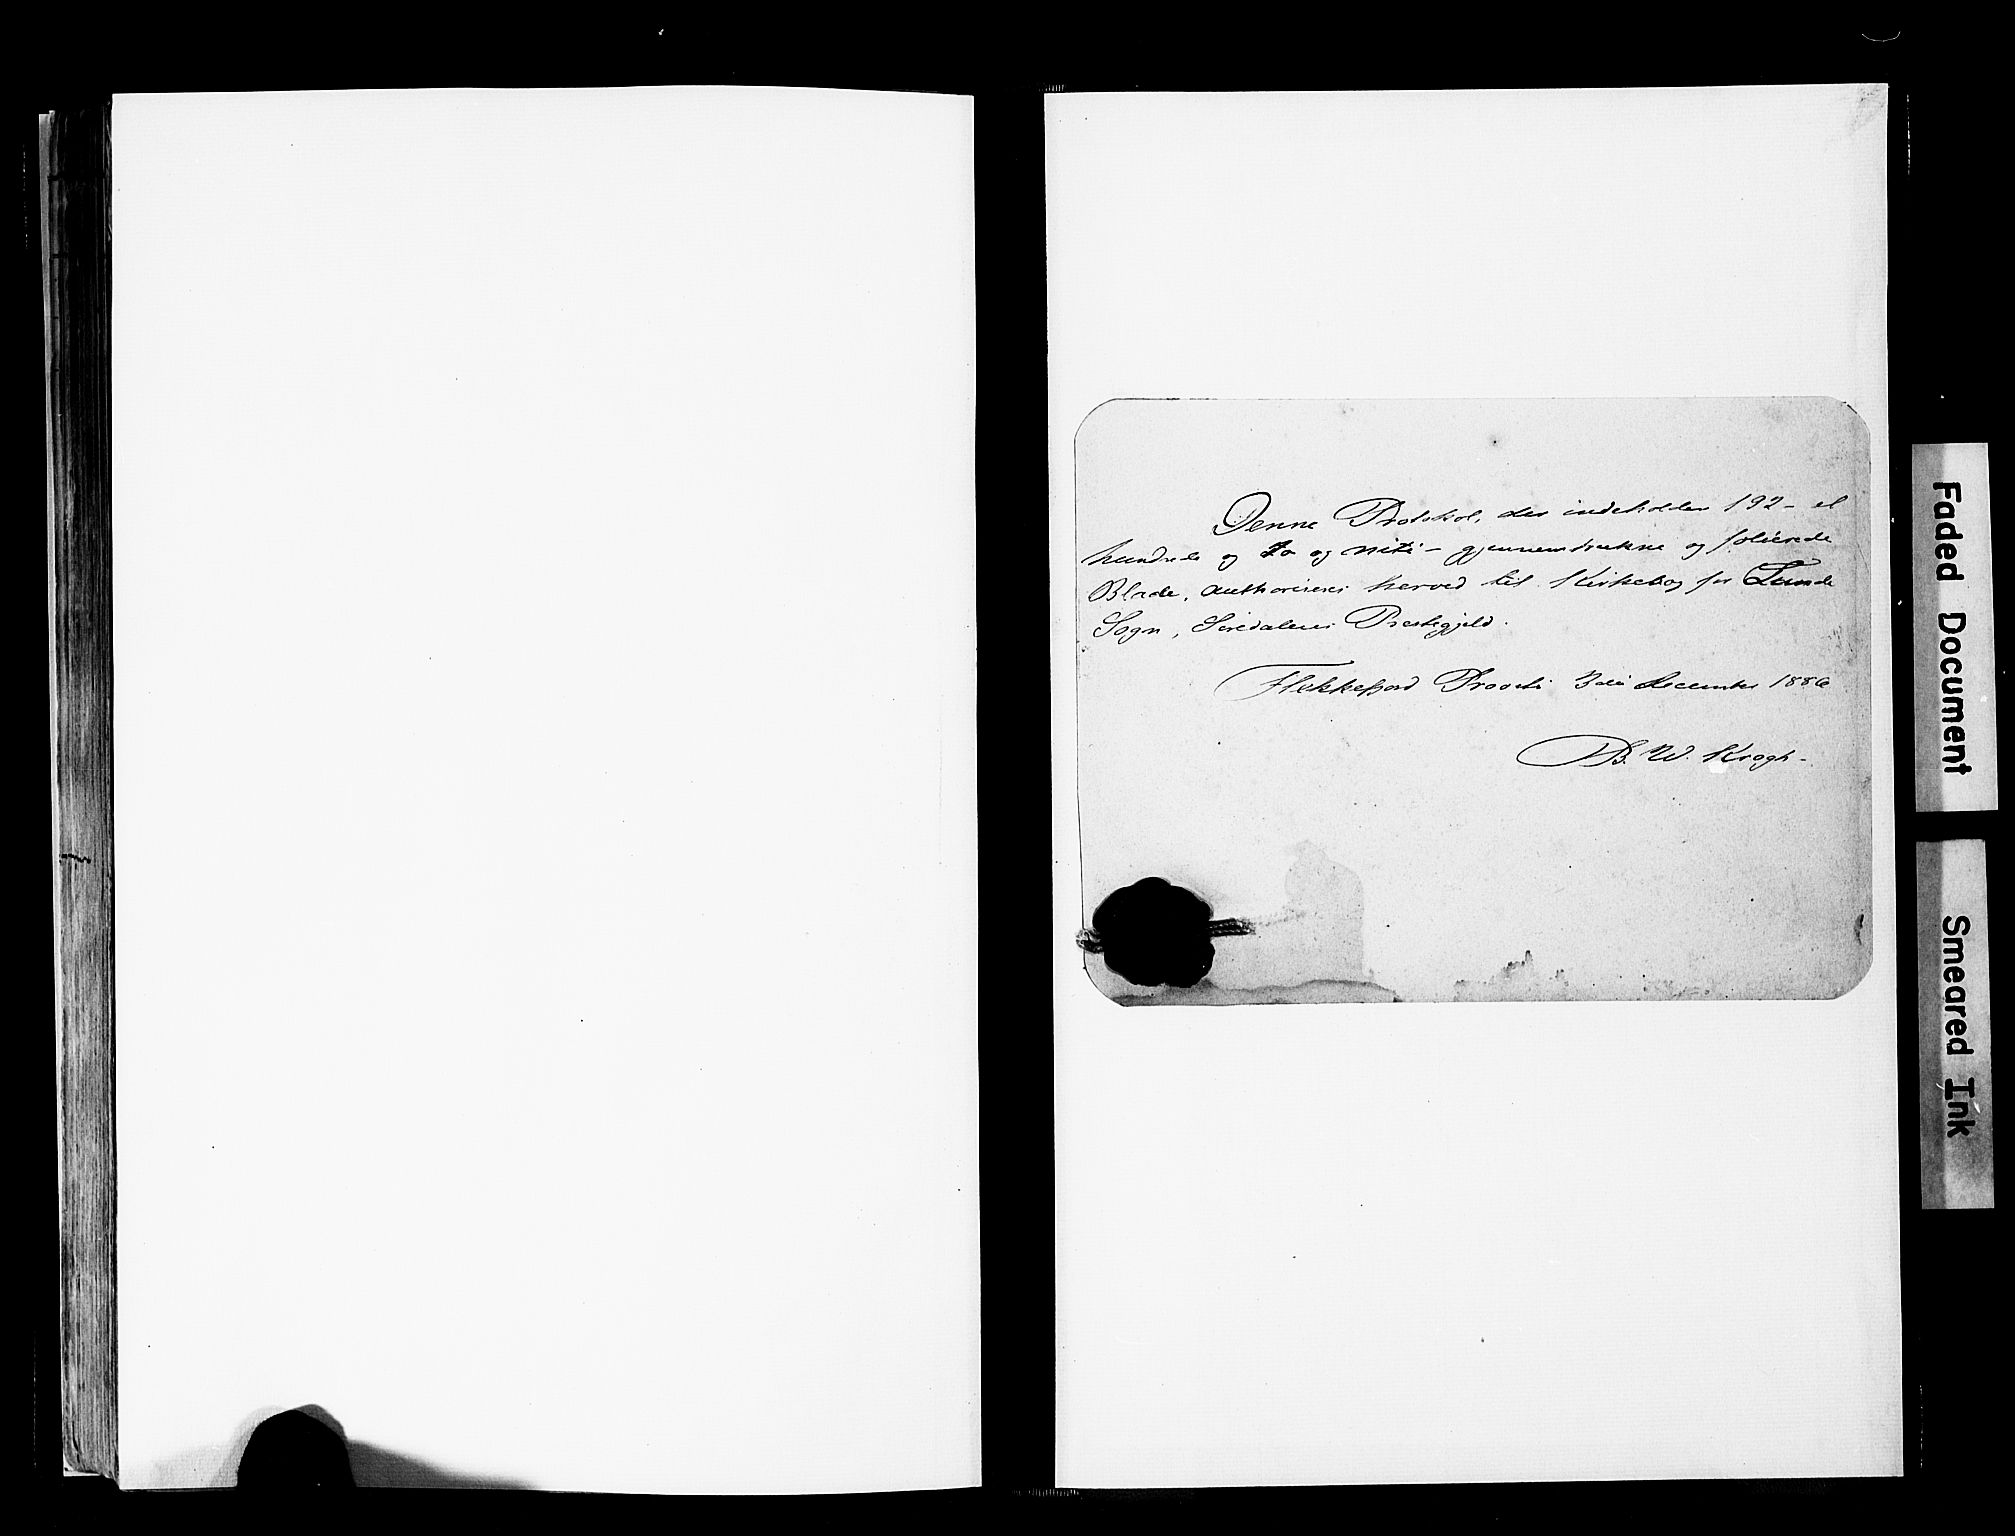 Denne Protokol, der indeholder 192 - et
hundrede og to og niti - gjennemtrukne og folierede
Blade, authoriseres herved til Kirkebog for Lunde
Sogn, Siredalens Præstegjeld.
Flekkefjord Provsti 3die December 1886
B. W. Krogh -
Faded Document
Smeared Ink